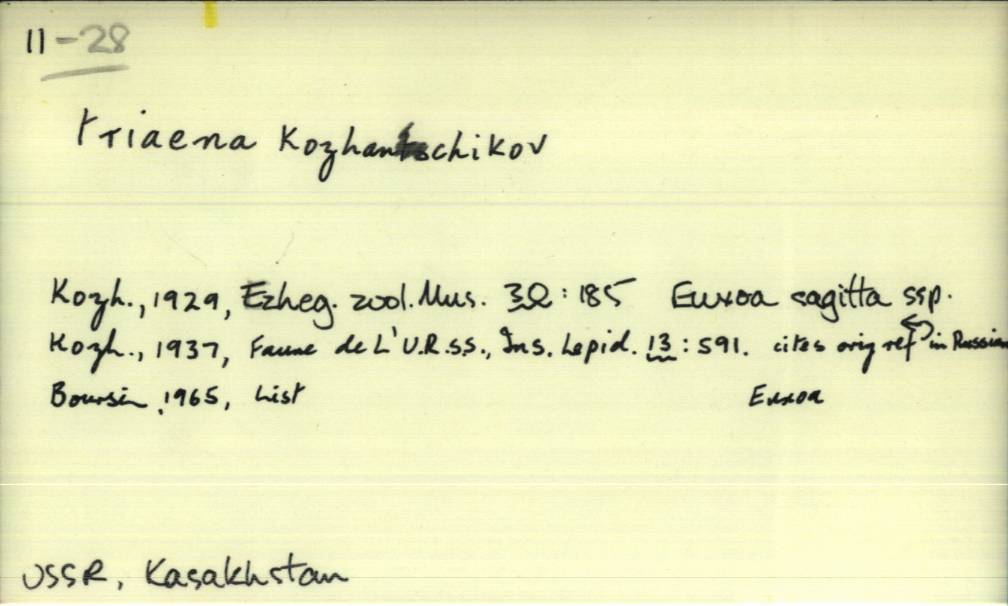 11-28
triaena Kozhantschikov
Kozh., 1929, Ezheg. zool. Mus. 30:185 Euxoa sagitta ssp.
Kozh., 1937, Faune de L'U.R.S.S., Ins. Lepid. 13:591. cites orig ref in Russian
Boursin, 1965, List Euxoa
USSR, Kasakhstan